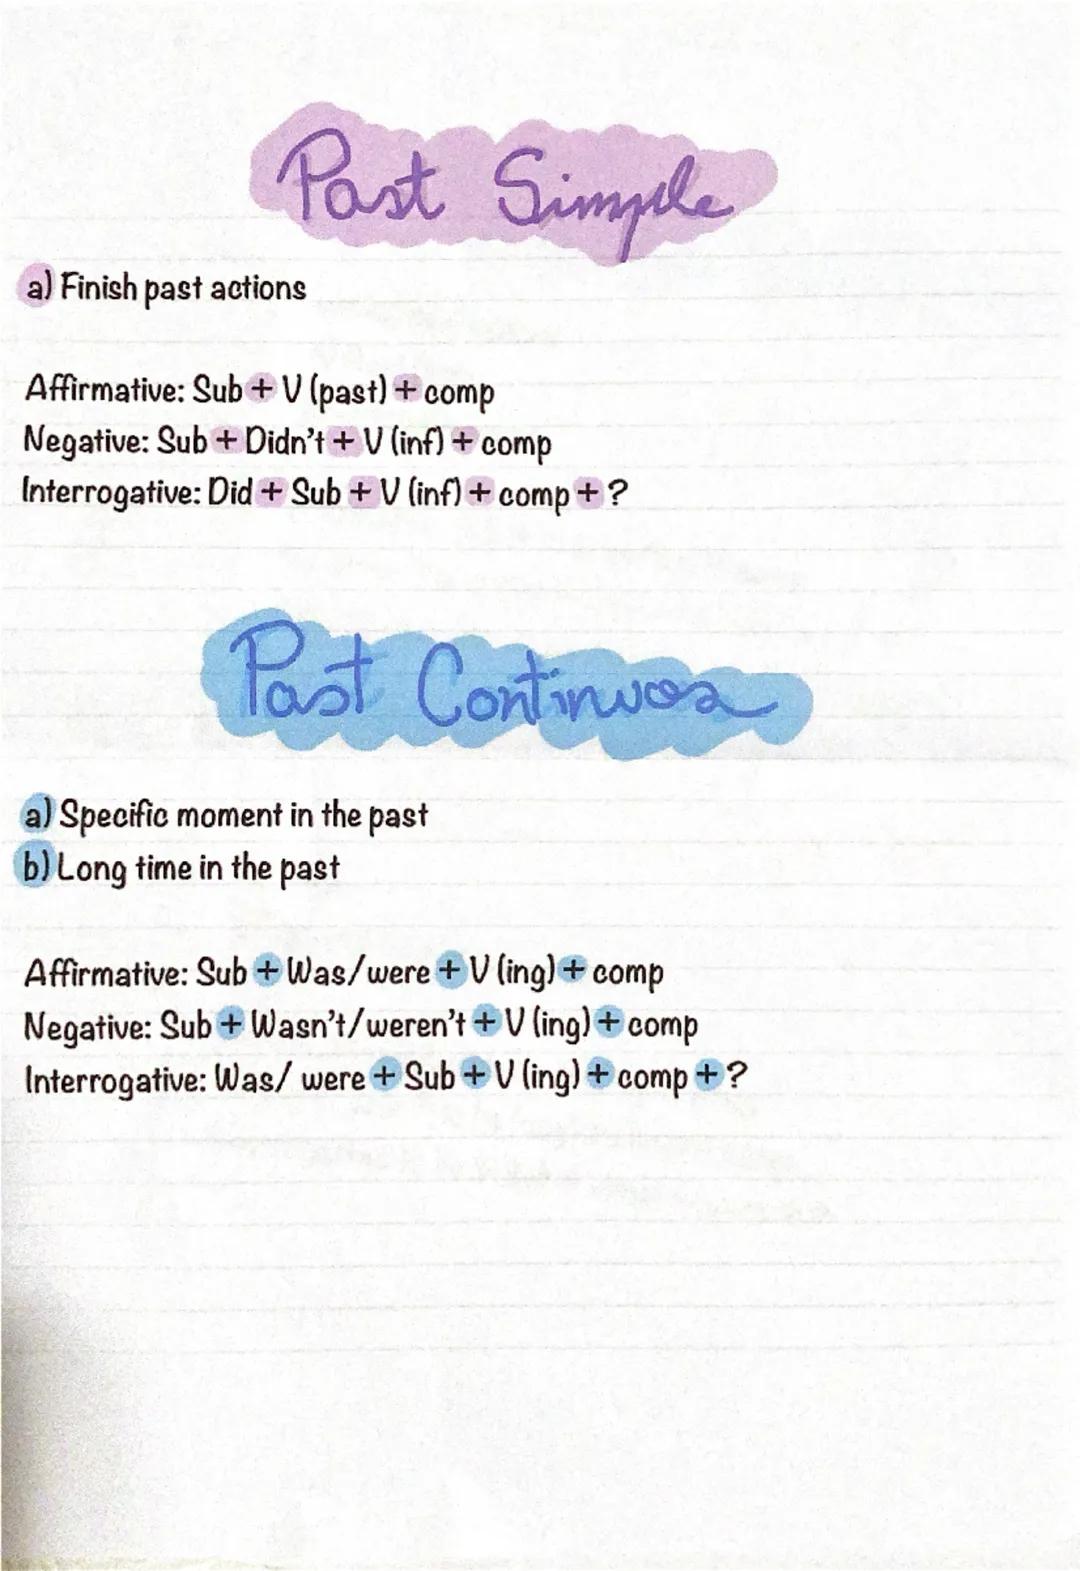 Past Simple
a) Finish past actions
Affirmative: Sub + V (past) + comp
Negative: Sub + Didn't + V (inf) + comp
Interrogative: Did + Sub + V (inf) + comp + ?
Past Continuos
a) Specific moment in the past
b) Long time in the past
Affirmative: Sub + Was/were + V (ing) + comp
Negative: Sub + Wasn't/weren't + V (ing) + comp
Interrogative: Was/ were + Sub + V (ing) + comp + ?